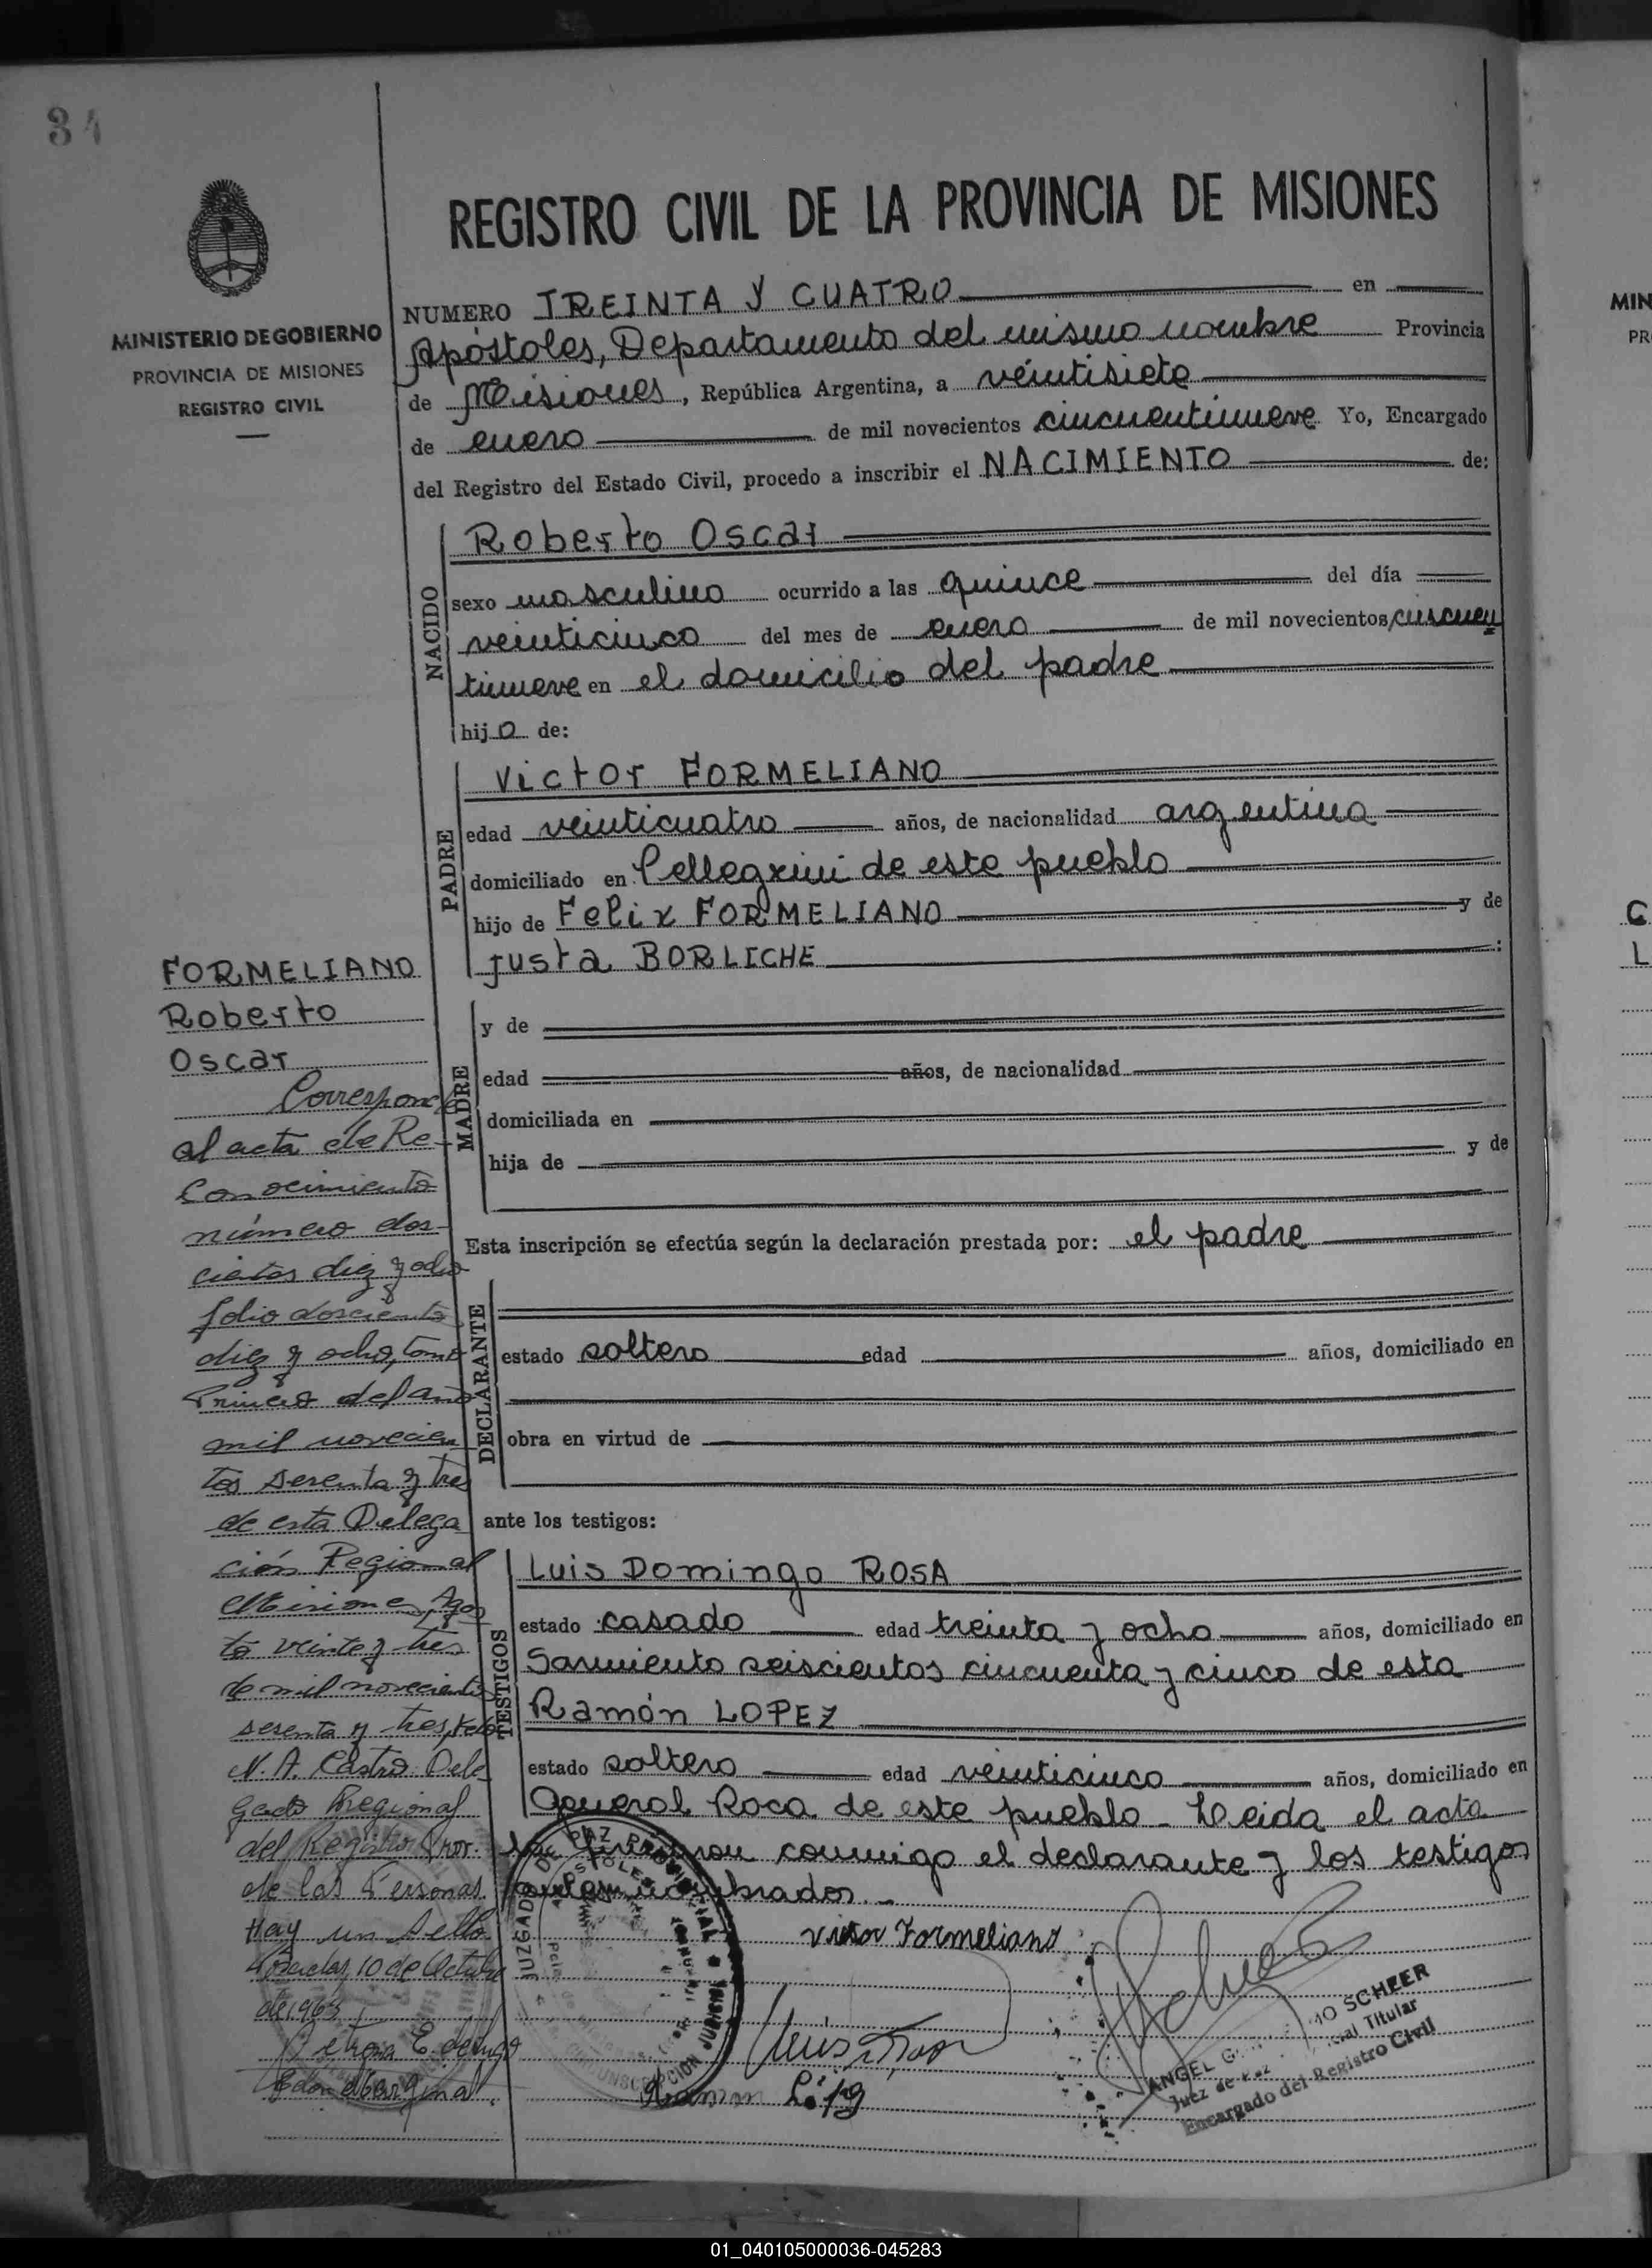 34
MINISTERIO DE GOBIERNO
PROVINCIA DE MISIONES
REGISTRO CIVIL
REGISTRO CIVIL DE LA PROVINCIA DE MISIONES
NUMERO TREINTA Y CUATRO en
Apóstoles, Departamento del mismo nombre Provincia
de Misiones, República Argentina, a veintisiete
de enero de mil novecientos cincuentinueve Yo, Encargado
del Registro del Estado Civil, procedo a inscribir el NACIMIENTO de:
NACIDO
Roberto Oscar
sexo masculino ocurrido a las quince del día
veinticinco del mes de enero de mil novecientos cincuen
tinueve en el domicilio del padre
hijo de:
PADRE
Victor FORMELIANO
edad veinticuatro años, de nacionalidad argentina
domiciliado en Pellegrini de este pueblo
hijo de Felix FORMELIANO y de
Justa BORLICHE :
MADRE
y de
edad años, de nacionalidad
domiciliada en
hija de y de
Esta inscripción se efectúa según la declaración prestada por: el padre
DECLARANTE
estado soltero edad años, domiciliado en
obra en virtud de
ante los testigos:
TESTIGOS
Luis Domingo ROSA
estado casado edad treinta y ocho años, domiciliado en
Sarmiento seiscientos cincuenta y cinco de esta
Ramón LOPEZ
estado soltero edad veinticinco años, domiciliado en
General Roca de este pueblo - Leida el acta
conmigo el declarante y los testigos
Victor Formeliano
JUZGADO DE PAZ
ANGEL SCHEER
Juez de Paz Titular
Encargado del Registro Civil
FORMELIANO
Roberto
Oscar
Corresponde
al acta de Re-
conocimiento
número dos-
cientos diez y ocho
folio doscientos
diez y ocho, tomo
Primero del año
mil novecien
tos sesenta y tres
de esta Delega
ción Regional
Misiones, Agos
to veinte y tres
de mil novecientos
sesenta y tres,
N. A. Castro Dele
gado Regional
del Registro Prov.
de las Personas
Hay un sello
Posadas, 10 de Octubre
de 1963
MIN
PR
C
L
01_040105000036-045283